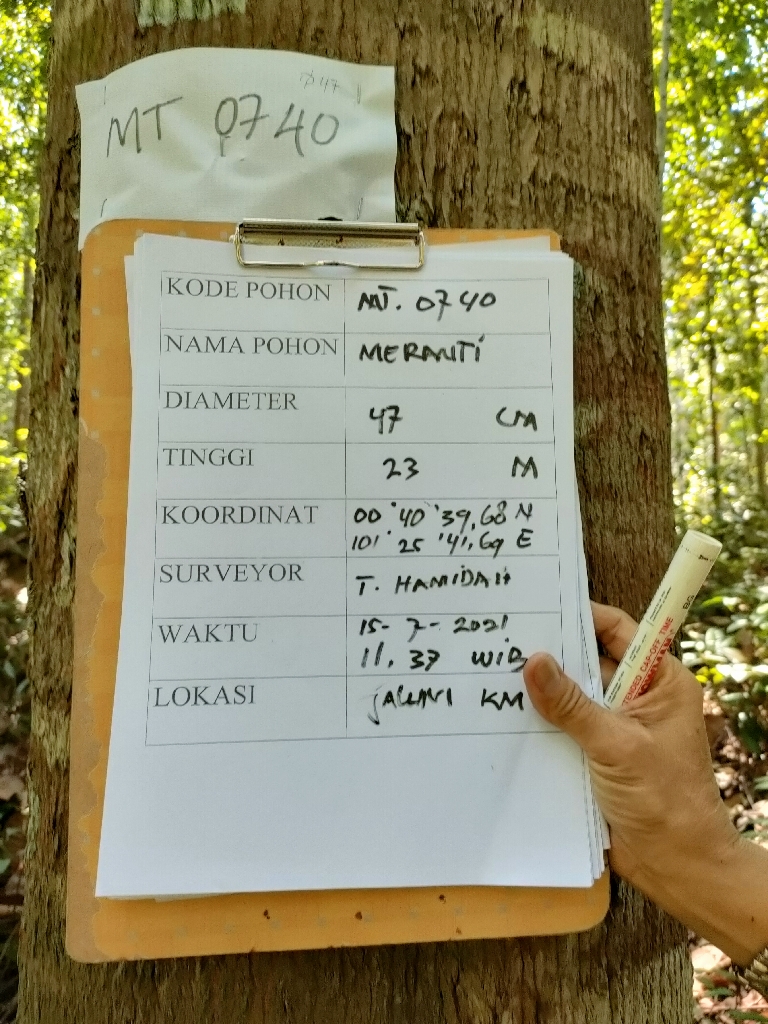 MT 0740
KODE POHON MT. 0740
NAMA POHON MERANTI
DIAMETER 47 CM
TINGGI 23 M
KOORDINAT 00° 40 '39,68 N
101° 25 '41,69 E
SURVEYOR T. HAMIDAH
WAKTU 15-7-2021
11.37 WIB
LOKASI JALAN KM
CAP-OFF TIME